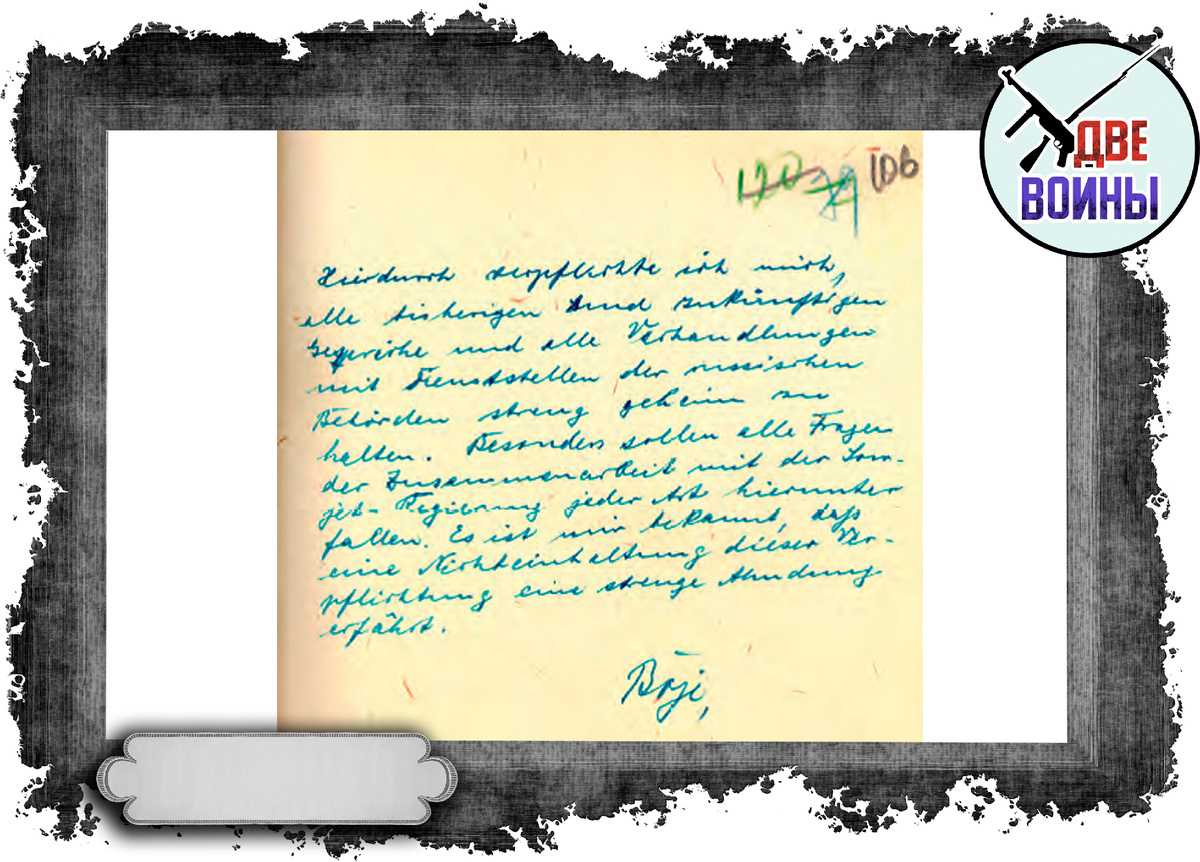 ДВЕ
ВОЙНЫ
120 79 106
Hierdurch verpflichte ich mich,
alle bisherigen und zukünftigen
Gespräche und alle Verhandlungen
mit Dienststellen der russischen
Behörden streng geheim zu
halten. Besonders sollen alle Fragen
der Zusammenarbeit mit der Sow-
jet-Regierung jeder Art hierunter
fallen. Es ist mir bekannt, daß
eine Nichteinhaltung dieser Ver-
pflichtung eine strenge Ahndung
erfährt.